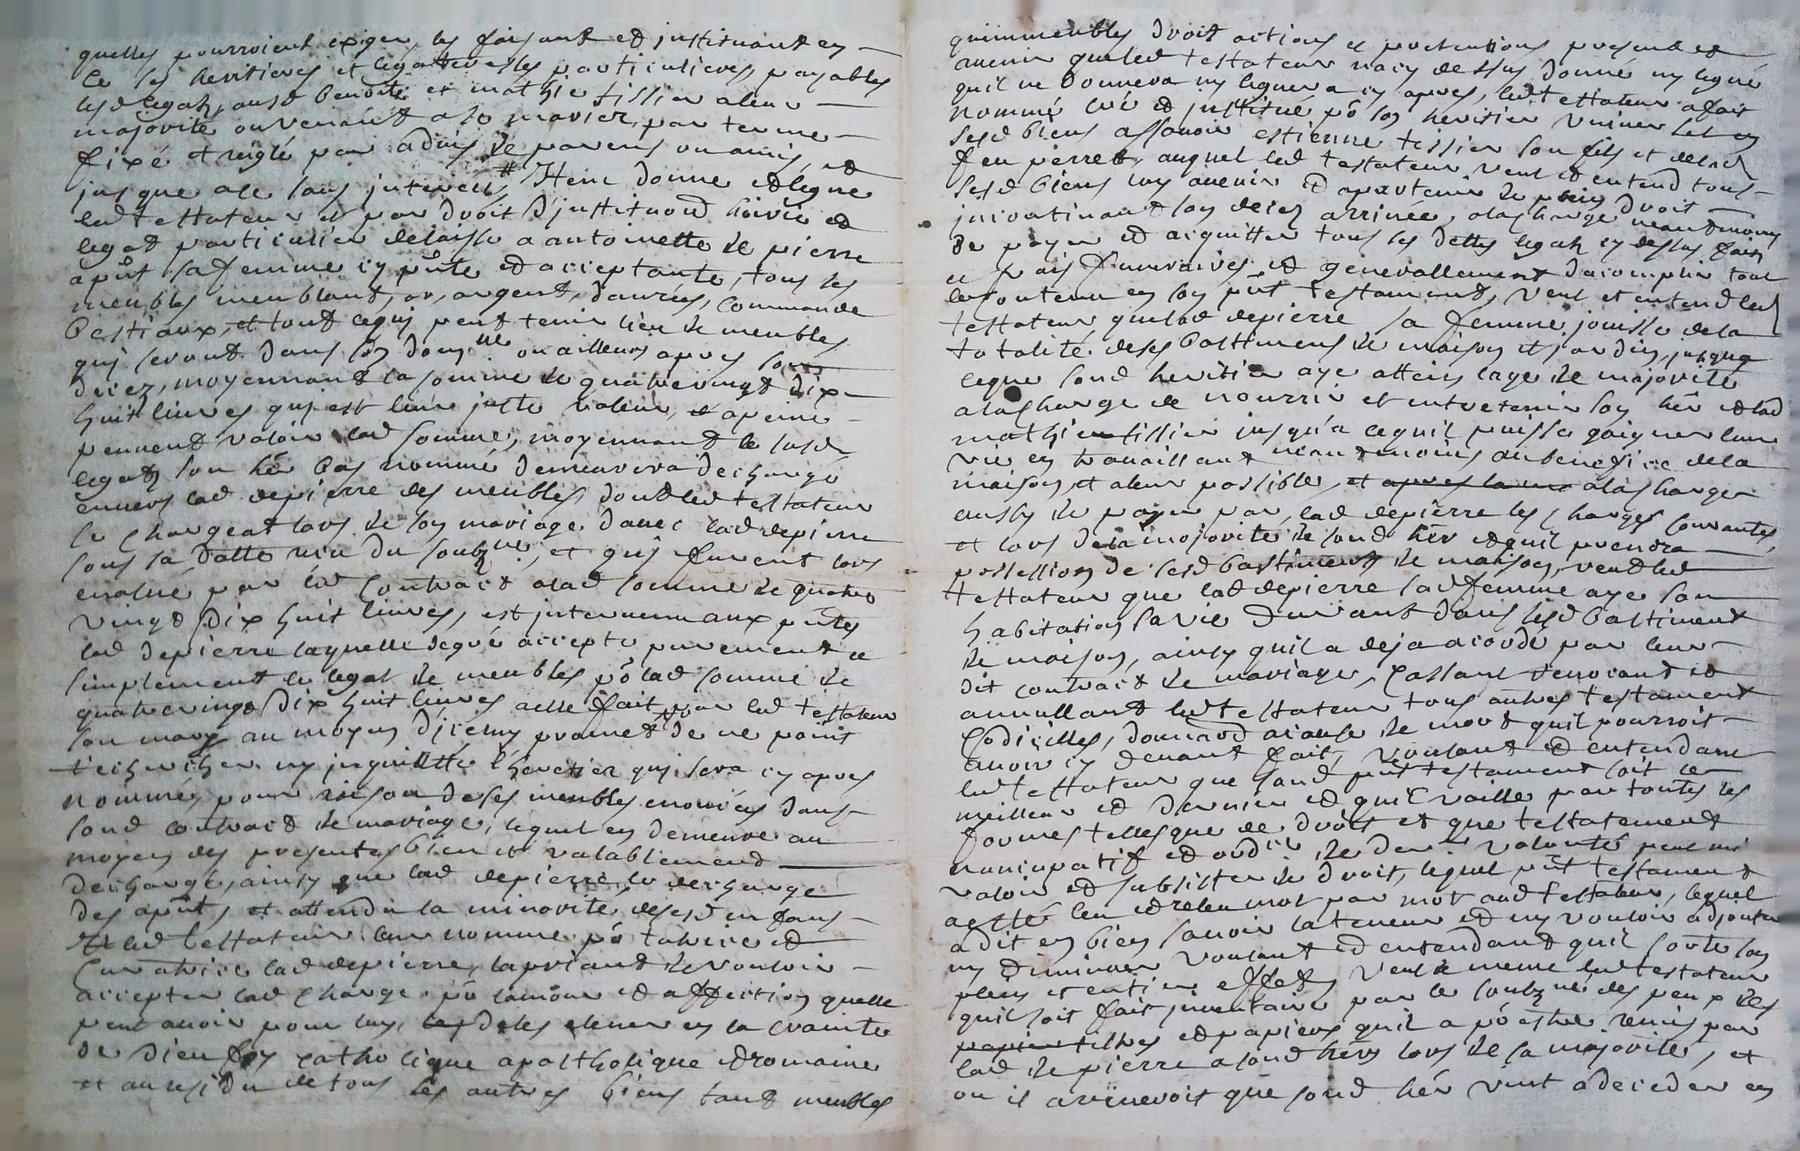 quelles pourroient exiger les faisant et instituant en
ce ses heritieres et legatteresses particulieres, payables
lesd legatz, ausd benoite et mathie tissier a leur
majorité ou venant a se marier, par terme
fixé et reiglé par advis de parens ou amis, et
jusque a ce sans interest # Item donne et legue
led testateur et par droit d'institu͠on hērē et
legat particulier delaisse a antoinette de pierre
a pn̄t sa femme cy pn̄te et acceptante, tous les
meubles meublant, or, argent, danrées, commande
bestiaux, et tout cequi peut tenir lieu de meubles
qui seront dans son domlle ou ailleurs apres son
decez, moyennant la somme de quatrevingt dix
huit livres qui est leur juste valeur, et a peine
peuvent valoir lad somme, moyennant le susd
legatz son hēr bas nommé demeurera dechargé
envers lad depierre des meubles, dont led testateur
se chargeat lors de son mariage avec lad depierre
sous sa datte receu du soubzné, et qui furent lors
evalué par led contract a lad somme de quatre
vingt dix huit livres, est intervenu aux pn̄tes
lad depierre laquelle de gré accepte purement et
simplement le legat de meubles pō lad somme de
quatrevingt dix huit livres a elle fait par led testateur
son mary au moyen dicemy promet de ne point
rechercher ny inquiette l'heretier qui sera cy apres
nommé, pour raison deses meubles enoncés dans
sond contract de mariage, lequel en demeure au
moyen des presentes bien et valablement
dechargé, ainsy que lad depierre le decharge
des apn̄t, et attendu la minorité desesd enfans
led testateur leur nomme pō tutrice et
curatrice lad depierre, lapriant de vouloir
accepter lad charge pō lamour et affection quelle
peut avoir pour luy, de les elever en la crainte
de dieu foy catholique apostholique et romaine
et au residu de tous ses autres biens tant meubles
quimmeubles droit actions et pretentions present et
avenir queled testateur na cy dessus donné ny legué
quil ne donnera ny leguera cy apres, led testateur a fait
nommé créé et institué pō son heritier universel en
sesd biens assavoir estienne tissier son fils et delad
feu pierrette, auquel led testateur veut et entend tous
sesd biens luy avenir et apartenir de plein droit
incontinant son decez arrivée, a la charge neantmoins
de payer et acquitter tous ses dettes legatz cy dessus fait
et frais funeraires et generallement dacomplir tout
le contenu en son pn̄t testament, veut et entend led
testateur que lad depierre sa femme jouisse de la
totalité deses bastiments de maison et jardin, jusque
ceque sond heritier aye attein laye de majorité
a la charge de nourrir et entretenir son hēr et lad
mathie tissier jusqua cequil puisse gaigner leur
vie en travaillant neantmoins au benefice de la
maison et a leur possible, et apres a la charge
aussy de payer par lad depierre les charges courantes,
et lors dela majorité de sond hēr et quil prendra
possession de sesd bastiments de maison, veut led
testateur que lad depierre sad femme aye son
habitation sa vie durant dans lesd bastiment
de maison, ainsy quil a deja acordé par leur
dit contract de mariage, cassant revocant et
annullant led testateur tous autres testament
codicilles, dona͠on a cause de mort quil pourroit
avoir cy devant fait, voulant et entendant
led testateur que sond pn̄t testament soit le
meilleur et dernier et quil vaille par toutes les
formes telles que de droit et que testatement
nuncupatif et ordre de der. volonté peut mi
valoir et subsister de droit, lequel pn̄t testament
a esté leu et releu mot par mot aud testateur, lequel
a dit en bien savoir la teneur et ny vouloir adjouter
ny diminuer voulant et entendant quil sorte son
plein et entier effet, veut de meme led testateur
quil soit fait inventaire par le soubzné des peux des
tiltres et papiers quil a pō estre remis par
lad de pierre a sond hēr lors de sa majorité, et
ou il ariveroit que sond hēr vint a deceder en